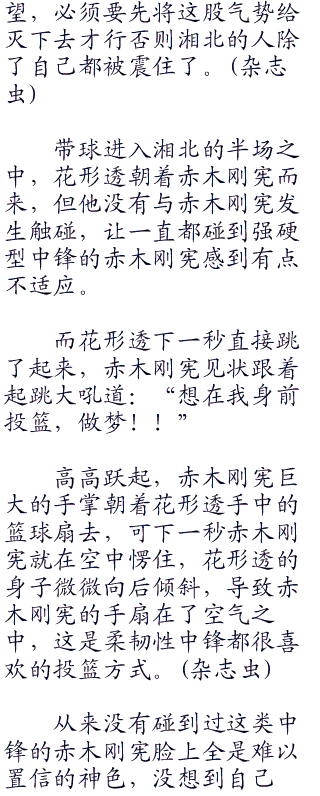 望，必须要先将这股气势给
灭下去才行否则湘北的人除
了自己都被震住了。(杂志
虫)
带球进入湘北的半场之
中，花形透朝着赤木刚宪而
来，但他没有与赤木刚宪发
生触碰，让一直都碰到强硬
型中锋的赤木刚宪感到有点
不适应。
而花形透下一秒直接跳
了起来，赤木刚宪见状跟着
起跳大吼道：“想在我身前
投篮，做梦！！”
高高跃起，赤木刚宪巨
大的手掌朝着花形透手中的
篮球扇去，可下一秒赤木刚
宪就在空中愣住，花形透的
身子微微向后倾斜，导致赤
木刚宪的手扇在了空气之
中，这是柔韧性中锋都很喜
欢的投篮方式。(杂志虫)
从来没有碰到过这类中
锋的赤木刚宪脸上全是难以
置信的神色，没想到自己